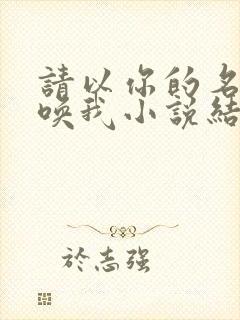 請以你的名
喚我小說結
於志强